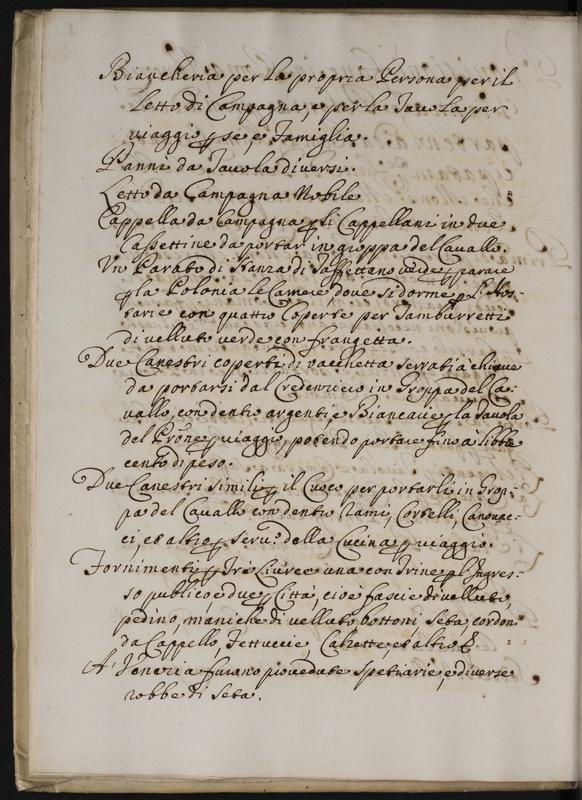 Biancheria per la propria Persona per il
Letto di Campagna, e per la Tavola per
viaggio p se, e Famiglia.
Panni da Tavola diversi.
Letto da Campagna Nobile
Cappella da Campagna p li Cappellani in due
Cassettine da portar in groppa del Cavallo.
Un Parato di Stanza di Taffettano verde p parare
p la Polonia le Camere, dove si dorme p l'Hos-
tarie con quattro Coperte per Tamburretti
di velluto verde con frangetta.
Due Canestri coperti di vacchetta serrati à chiave
da portarsi dal Credenziero in Groppa del Ca-
vallo, con dentro argenti, e Biancarie p la Tavola
del Prône p viaggio, potendo portare fino à libbre
cento di peso.
Due Canestri simili p il Cuoco per portarli in Grop-
pa del Cavallo con dentro Rami, Cortelli, Canovac-
ci, et altro p serv.o della Cucina p viaggio.
Fornimenti p Tre Livree una con Trine p l'Ingres-
so publico e due p Città, cioè fascie di velluto,
pedino, maniche di velluto bottoni seta cordon
da Cappello, Fettuccie, Calzette, et altro &
A' Venetia furano provedute Spetiarie, e diverse
robbe di seta.